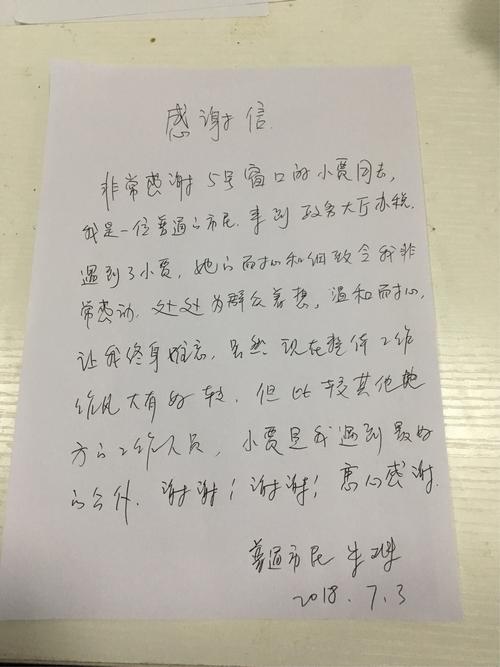 感谢信
非常感谢5号窗口的小贾同志,
我是一位普通的市民.来到政务大厅办税.
遇到了小贾,她的耐心和细致令我非
常感动.处处为群众着想,温和耐心,
让我终身难忘,虽然现在整体工作
作风大有好转,但比较其他地
方的工作人员,小贾是我遇到最好
的.谢谢!谢谢!衷心感谢.
普通市民 朱
2018.7.3